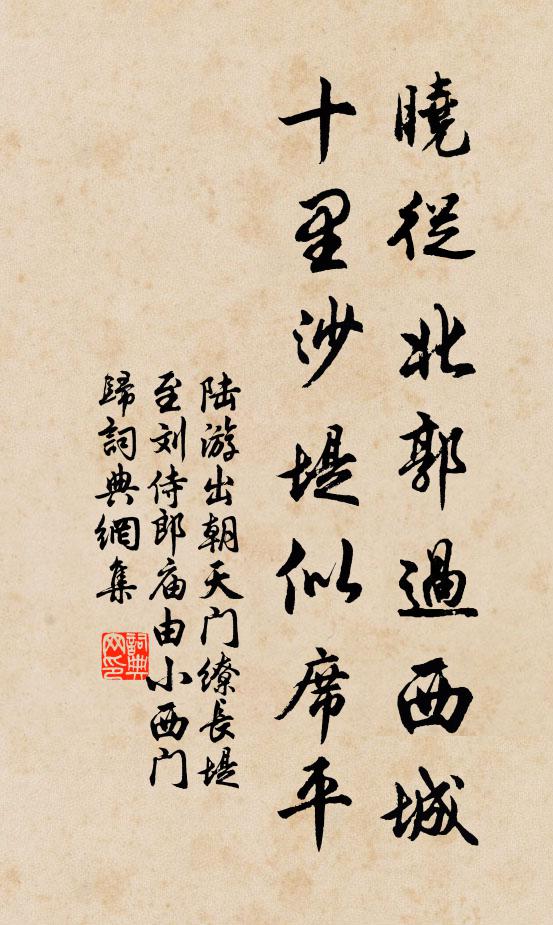 曉從北郭過西城
十里沙堤似席平
陆游出朝天门缭長堤
至刘侍郎庙由小西门
歸詞典網集
詞典网印